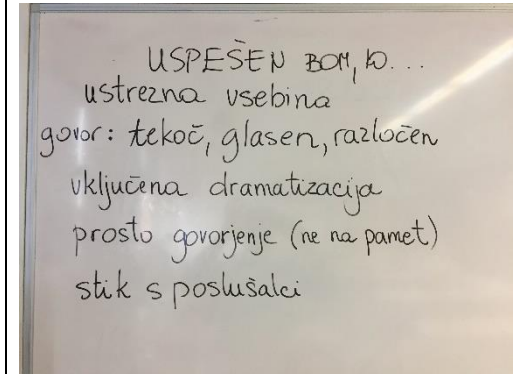 USPEŠEN BOM, KO...
ustrezna vsebina
govor: tekoč, glasen, razločen
vključena dramatizacija
prosto govorjenje (ne na pamet)
stik s poslušalci